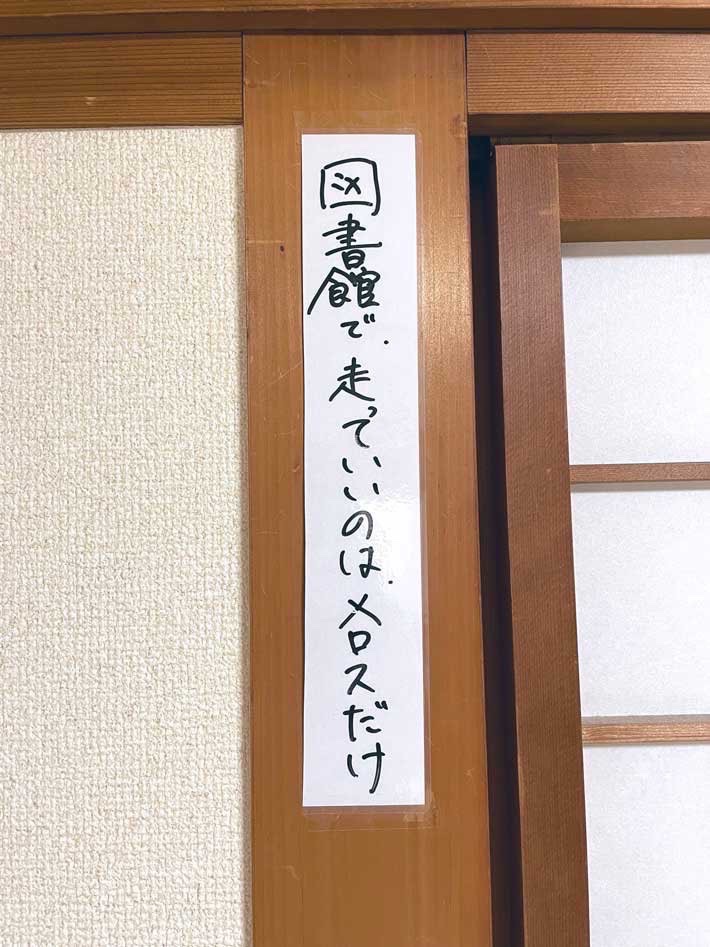 図書館で、走っていいのは、メロスだけ